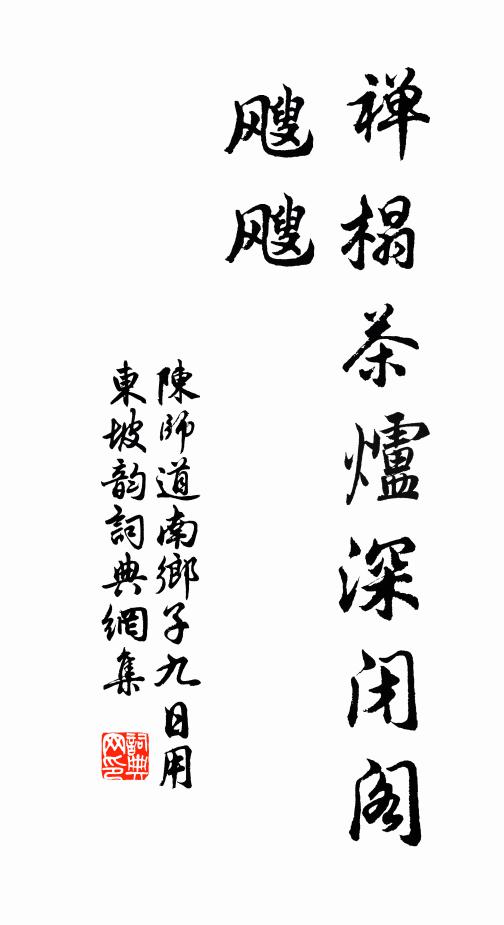 禅榻茶爐深闭阁
飕飕
陳師道南鄉子九日用
東坡韵詞典網集
詞典网印